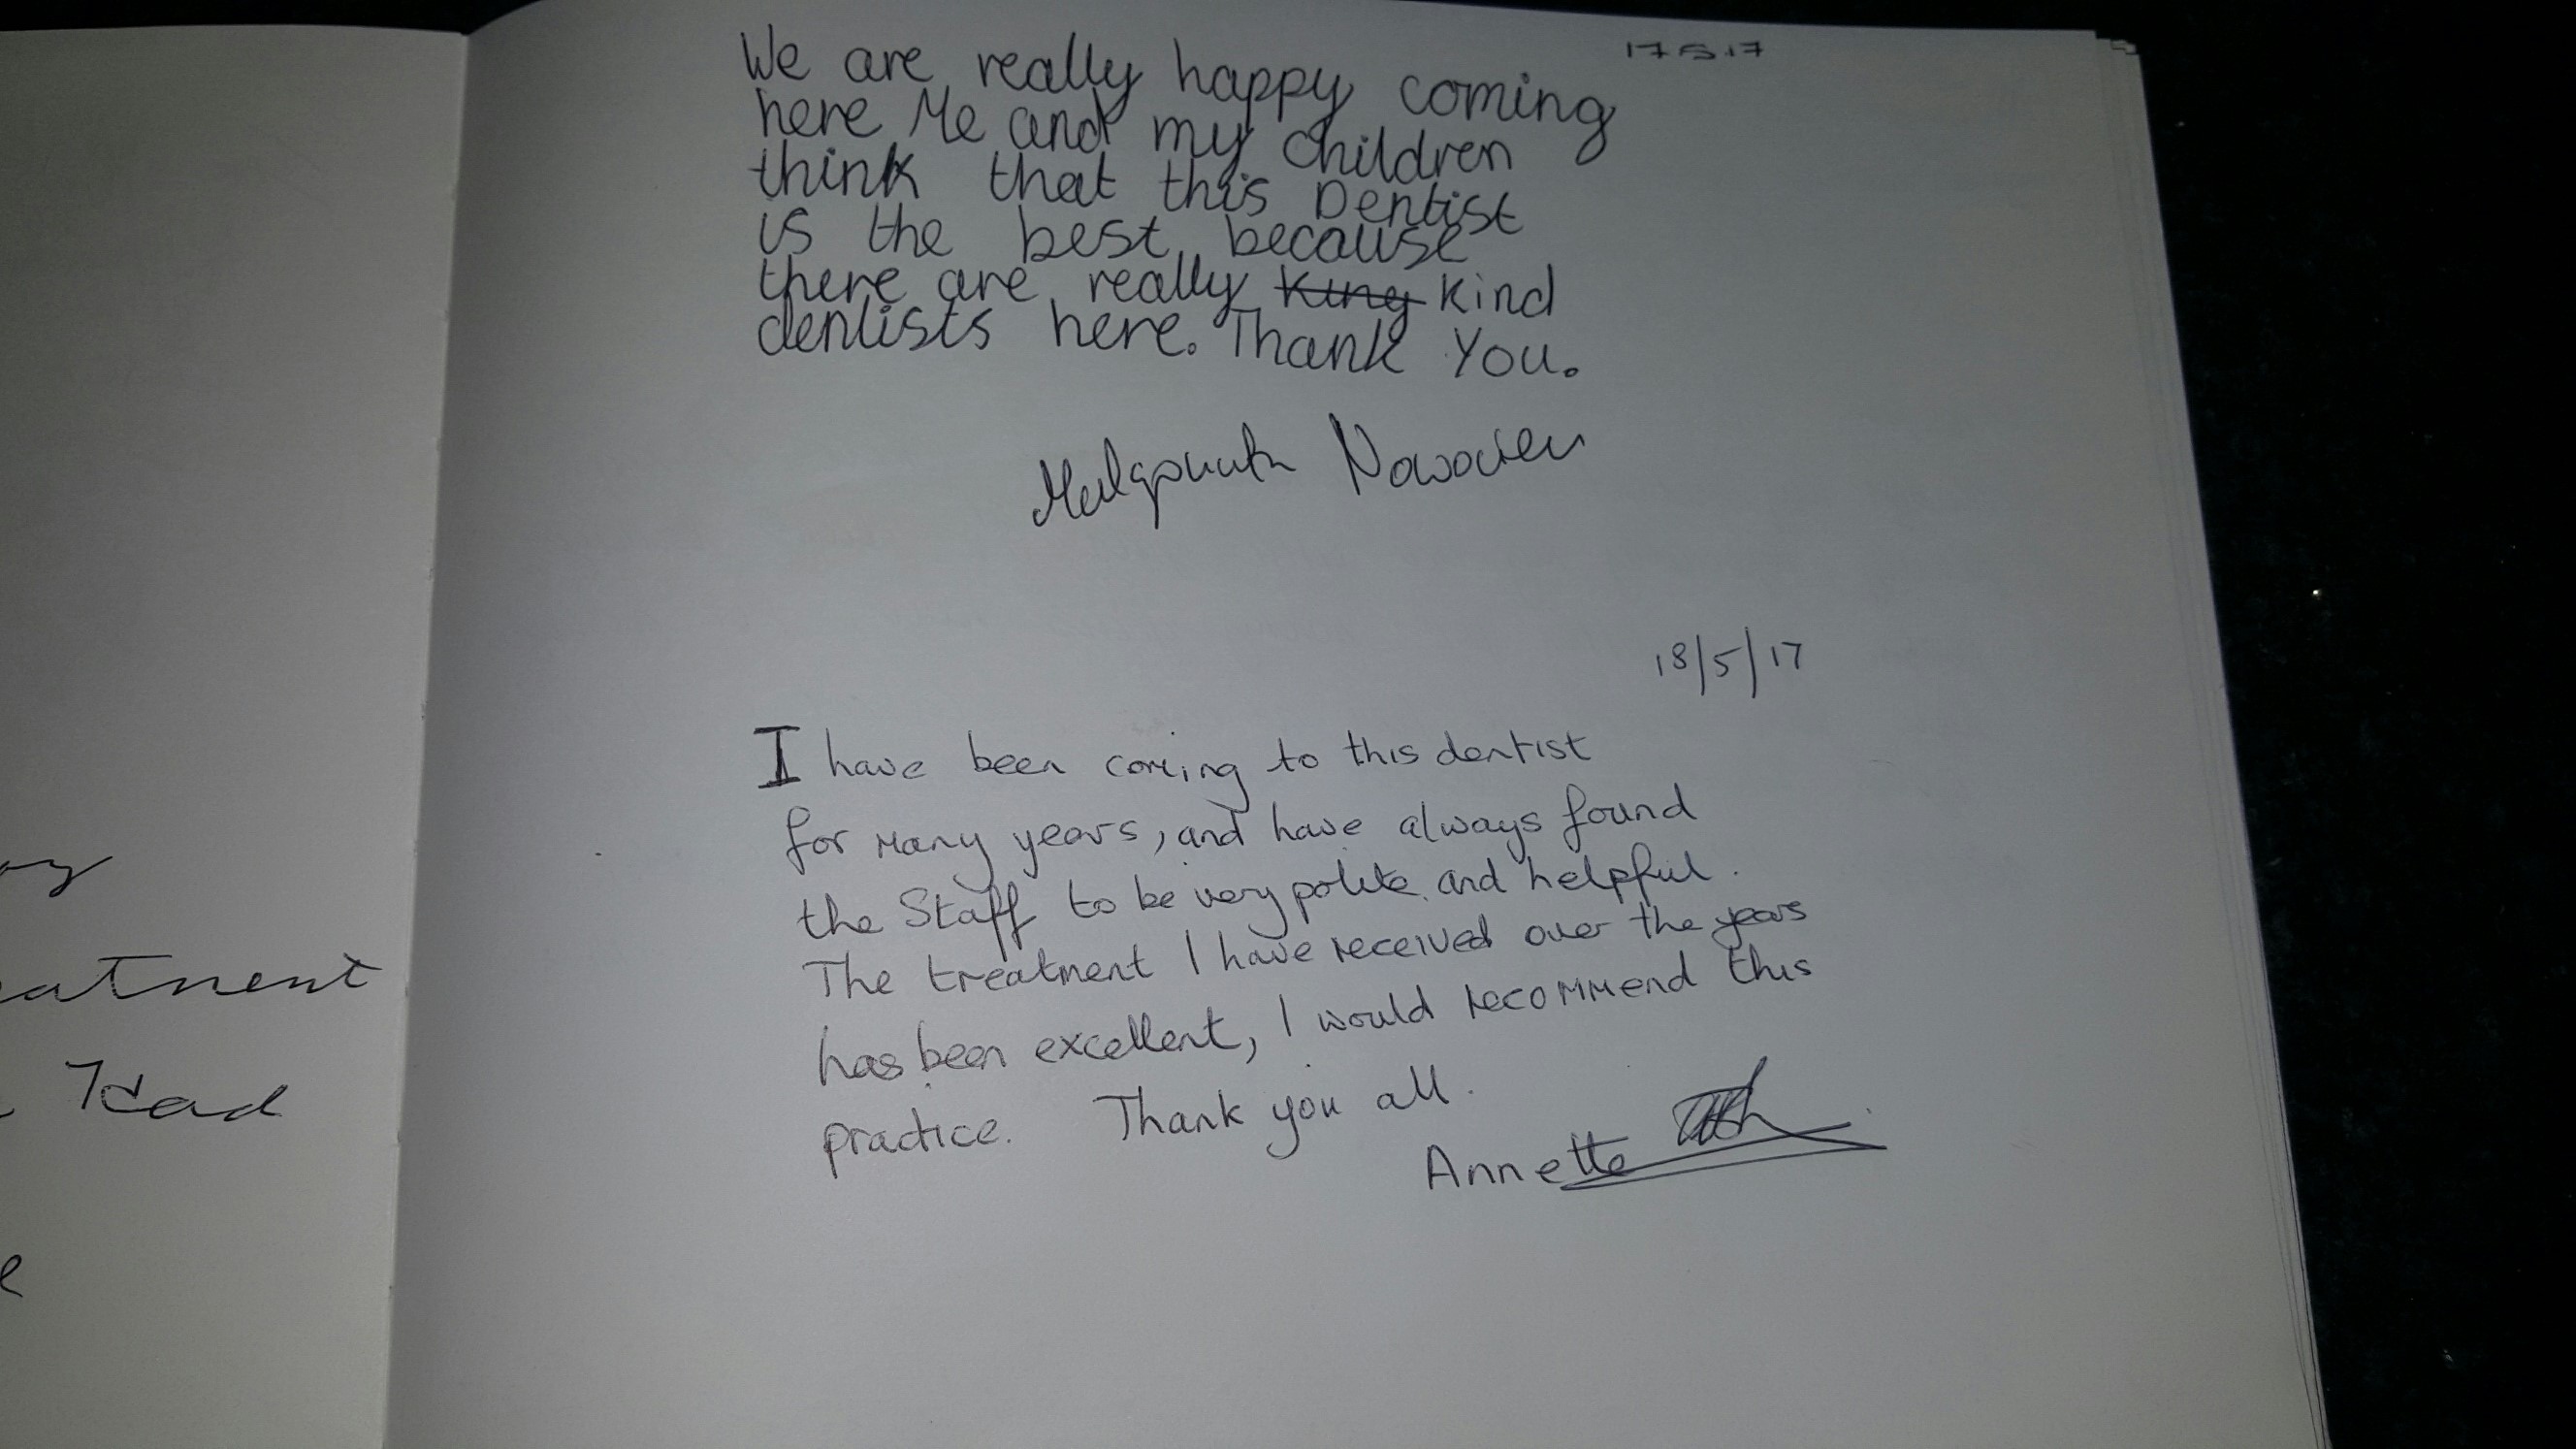 atment
17.5.17
We are really happy coming
here Me and my children
think that this Dentist
is the best because
there are really king kind
dentists here. Thank You.
18/5/17
I have been coming to this dentist
for many years, and have always found
the Staff to be very polite and helpful.
The treatment I have received over the years
has been excellent, I would recommend this
practice. Thank you all.
Annette